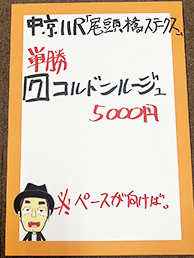 中京11R「尾頭橋ステークス」
単勝
7 コルドンルージュ
5000円
※ペースが向けば。